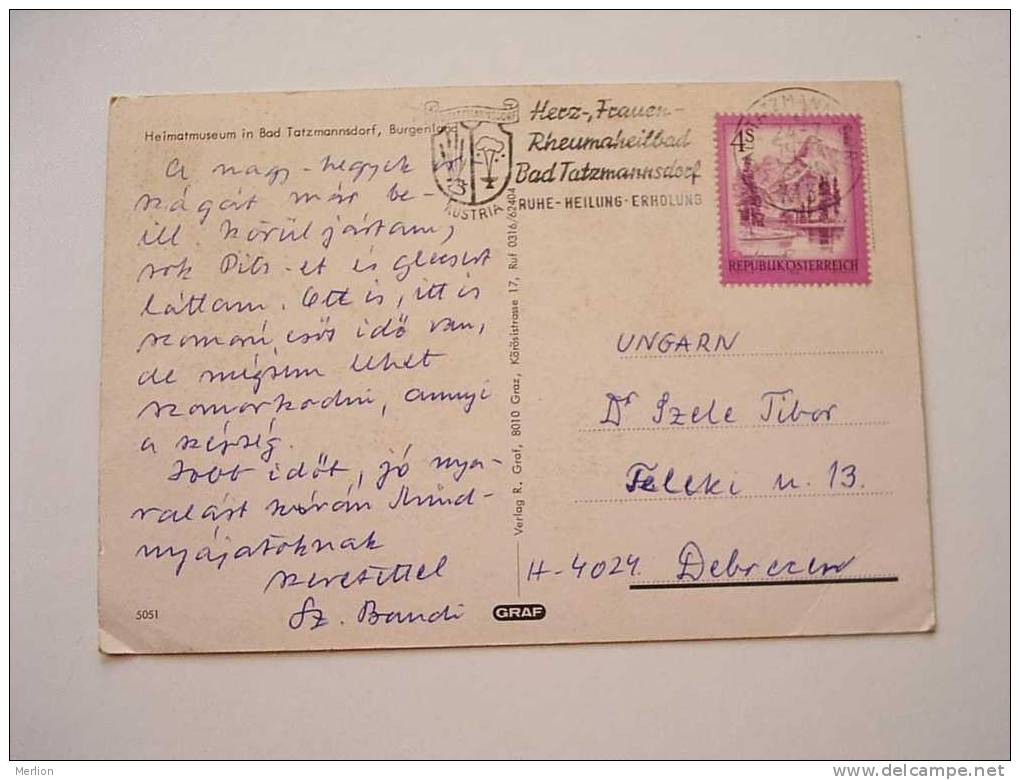 Heimatmuseum in Bad Tatzmannsdorf, Burgenland
AUSTRIA
Herz-, Frauen-
Rheumaheilbad
Bad Tatzmannsdorf
RUHE-HEILUNG-ERHOLUNG
4S
REPUBLIK ÖSTERREICH
A nagy-hegyek or-
szágát már be-
ill. körüljártam,
sok Pils-et is
láttam. Ott is, itt is
szomorú, esős idő van,
de mégsem lehet
szomorkodni, annyi
a szépség.
Jobb időt, jó nya-
ralást kíván Mind-
nyájatoknak
szeretettel
Sz. Bandi
5051
Verlag R. Graf, 8010 Graz, Körösistrasse 17, Ruf 0316/62404
GRAF
UNGARN
Dr Szele Tibor
Teleki u. 13.
H-4024 Debrecen
Merlion
www.delcampe.net